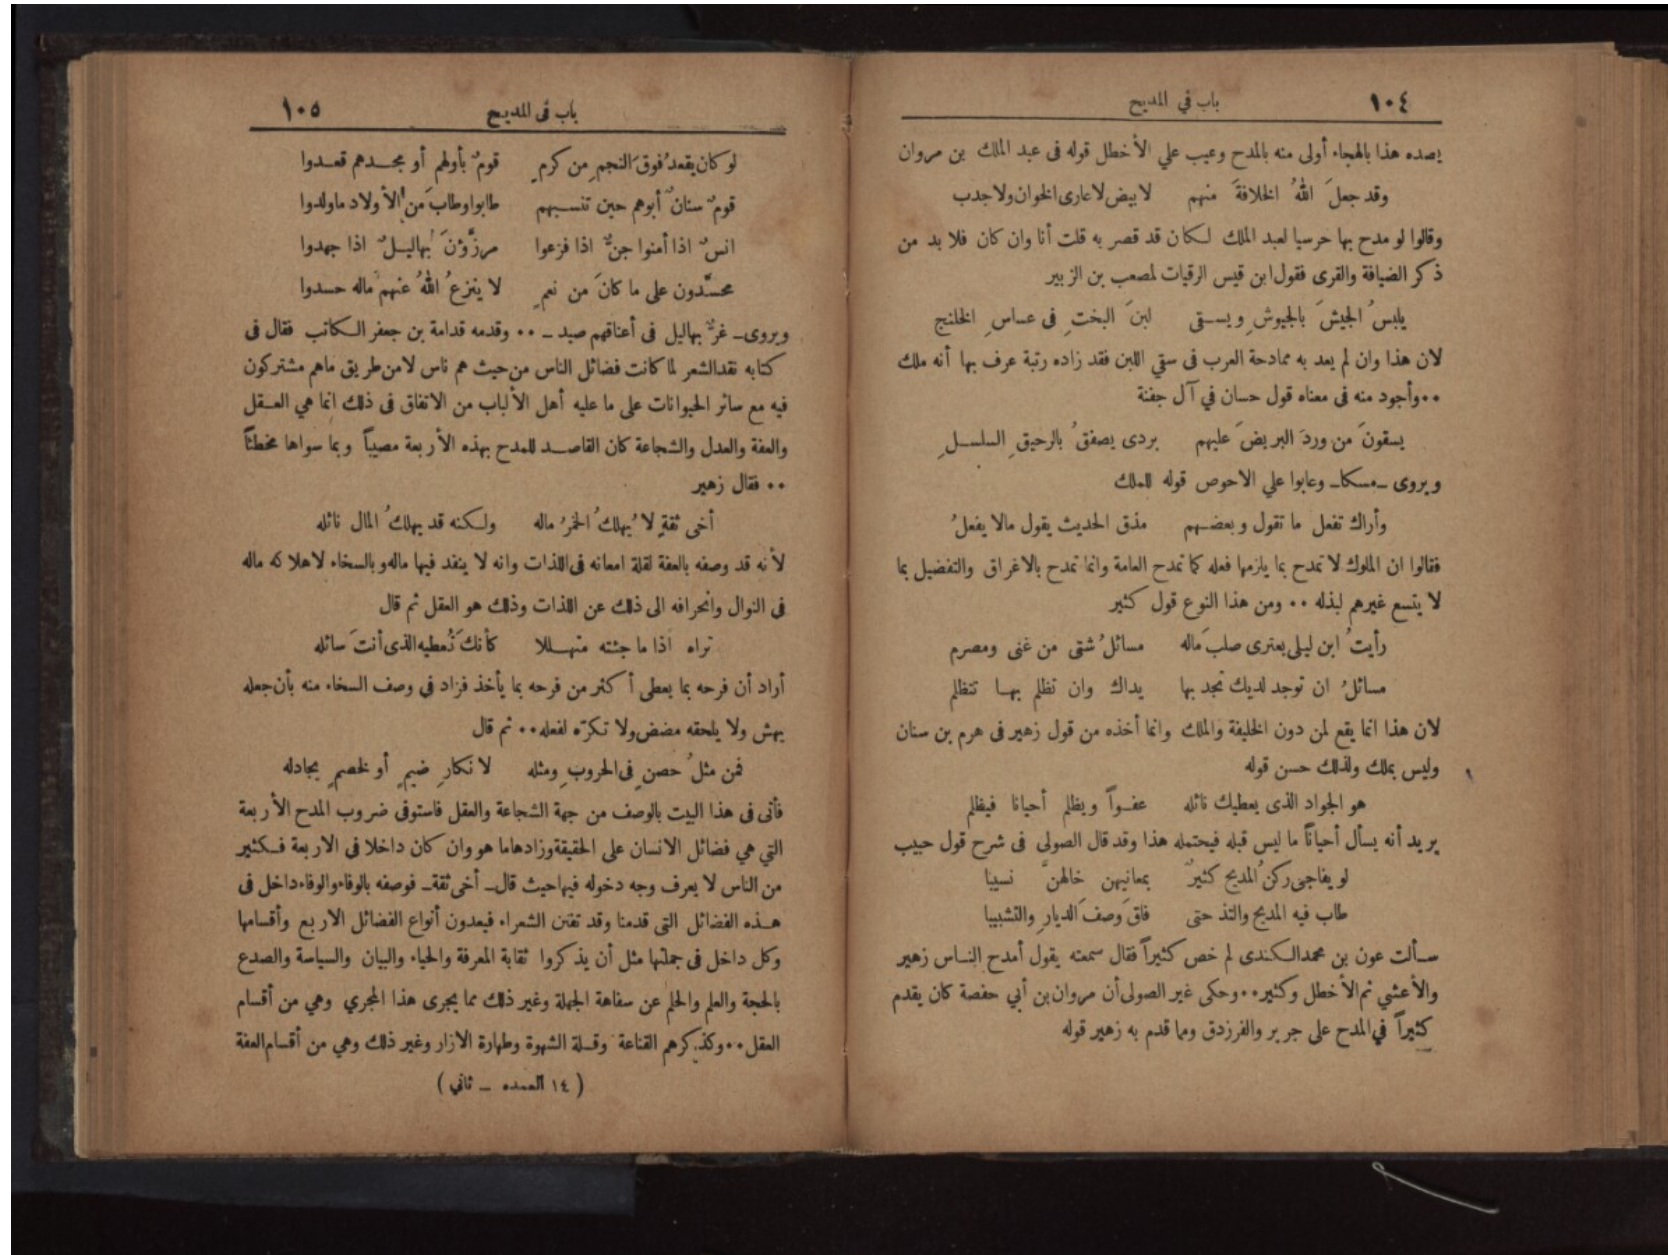 ١٠٤
باب في المديح
يصده هذا بالهجاء أولى منه بالمدح وعيب علي الأخطل قوله فى عبد الملك بن مروان
وقد جعلَ اللهُ الخلافةَ منهم لابيض لاعارى الخوان ولا جدب
وقالوا لو مدح بها حرسيا لعبد الملك لكان قد قصر به قلت أنا وان كان فلا بد من
ذكر الضيافة والقرى فقول ابن قيس الرقيات لمصعب بن الزبير
يلبسُ الجيشَ بالجيوشِ ويسقى لبنَ البختِ فى عساسِ الخلنج
لان هذا وان لم يعد به ممادحة العرب فى سقي اللبن فقد زاده رتبة عرف بها أنه ملك
٠٠ وأجود منه فى معناه قول حسان في آل جفنة
يسقونَ من وردَ البريضَ عليهم بردى يصفقُ بالرحيقِ السلسلِ
ويروى ـ مسكا ـ وعابوا علي الاحوص قوله للملك
وأراك تفعل ما تقول وبعضهم مذق الحديث يقول مالا يفعلُ
فقالوا ان الملوك لا تمدح بما يلزمها فعله كما تمدح العامة وانما تمدح بالاغراق والتفضيل بما
لا يتسع غيرهم لبذله ٠٠ ومن هذا النوع قول كثير
رأيتُ ابن ليلى يعترى صلبَ ماله مسائلُ شتى من غنى ومصرم
مسائلُ ان توجد لديك تجد بها يداك وان تظلم بها تتظلم
لان هذا انما يقع لمن دون الخليفة والملك وانما أخذه من قول زهير فى هرم بن سنان
وليس بملك ولذلك حسن قوله
هو الجواد الذى يعطيك نائله عفواً ويظلم أحيانا فيظلم
يريد أنه يسأل أحياناً ما ليس قبله فيحتمله هذا وقد قال الصولى فى شرح قول حبيب
لو يفاجى ركنُ المديح كثيرٌ بمعانيهن خالهنَّ نسيبا
طاب فيه المديح والتذ حتى فاقَ وصفَ الديارِ والتشبيبا
سألت عون بن محمد الكندى لم خص كثيراً فقال سمعته يقول أمدح الناس زهير
والأعشي ثم الأخطل وكثير ٠٠ وحكى غير الصولى أن مروان بن أبي حفصة كان يقدم
كثيراً في المدح على جرير والفرزدق ومما قدم به زهير قوله
باب فى المديح
١٠٥
لو كان يقعدُ فوقَ النجمِ من كرمٍ قومٌ بأولهم أو مجدهم قعدوا
قومٌ سنانٌ أبوهم حين تنسبهم طابوا وطابَ من الأولاد ماولدوا
انسٌ اذا أمنوا جنٌّ اذا فزعوا مرزَّؤنَ بهاليلٌ اذا جهدوا
محسَّدون على ما كانَ من نعمٍ لا ينزعُ اللهُ عنهم ماله حسدوا
ويروى ـ غرٌّ بهاليل فى أعناقهم صيد ـ ٠٠ وقدمه قدامة بن جعفر الكاتب فقال فى
كتابه نقد الشعر لما كانت فضائل الناس من حيث هم ناس لامن طريق ماهم مشتركون
فيه مع سائر الحيوانات على ما عليه أهل الألباب من الاتفاق فى ذلك انما هي العقل
والعفة والعدل والشجاعة كان القاصد للمدح بهذه الأربعة مصيباً وبما سواها مخطئاً
٠٠ فقال زهير
أخى ثقةٍ لا يُهلكُ الخمرُ ماله ولكنه قد يهلكُ المال نائله
لأنه قد وصفه بالعفة لقلة امعانه فى اللذات وانه لا ينفد فيها ماله وبالسخاء لاهلاكه ماله
فى النوال وانحرافه الى ذلك عن اللذات وذلك هو العقل ثم قال
تراه اذا ما جئته متهللا كأنكَ تُعطيه الذى أنتَ سائله
أراد أن فرحه بما يعطى أكثر من فرحه بما يأخذ فزاد فى وصف السخاء منه بأن جعله
يهش ولا يلحقه مضض ولا تكرّه لفعله ٠٠ ثم قال
فمن مثلُ حصنٍ فى الحروبِ ومثله لا نكارِ ضيمٍ أو لخصمٍ يجادله
فأتى فى هذا البيت بالوصف من جهة الشجاعة والعقل فاستوفى ضروب المدح الأربعة
التي هي فضائل الانسان على الحقيقة وزادهاما هو وان كان داخلا فى الاربعة فكثير
من الناس لا يعرف وجه دخوله فيها حيث قال ـ أخى ثقة ـ فوصفه بالوفاء والوفاء داخل فى
هذه الفضائل التى قدمنا وقد تفتن الشعراء فيعدون أنواع الفضائل الاربع وأقسامها
وكل داخل فى جملتها مثل أن يذكروا ثقابة المعرفة والحياء والبيان والسياسة والصدع
بالحجة والعلم والحلم عن سفاهة الجهلة وغير ذلك مما يجرى هذا المجري وهي من أقسام
العقل ٠٠ وكذكرهم القناعة وقلة الشهوة وطهارة الازار وغير ذلك وهي من أقسام العفة
( ١٤ العمده ـ ثاني )